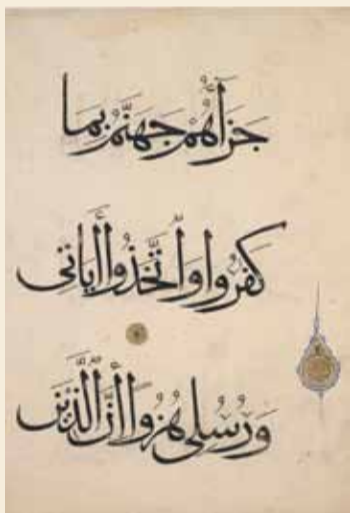 جَزَآؤُهُمْ جَهَنَّمُ بِمَا
كَفَرُوا وَاتَّخَذُوا اٰيَاتِى
وَرُسُلِى هُزُوًا اِنَّ الَّذٖينَ